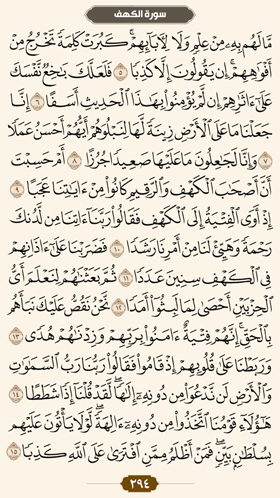 سورة الكهف
مَّا لَهُم بِهِۦ مِنْ عِلْمٍ وَلَا لِأٓبَآئِهِمْ ۚ كَبُرَتْ كَلِمَةً تَخْرُجُ مِنْ
أَفْوَٰهِهِمْ ۚ إِن يَقُولُونَ إِلَّا كَذِبًا ٥ فَلَعَلَّكَ بَٰخِعٌ نَّفْسَكَ
عَلَىٰٓ ءَاثَٰرِهِمْ إِن لَّمْ يُؤْمِنُوا۟ بِهَٰذَا ٱلْحَدِيثِ أَسَفًا ٦ إِنَّا
جَعَلْنَا مَا عَلَى ٱلْأَرْضِ زِينَةً لَّهَا لِنَبْلُوَهُمْ أَيُّهُمْ أَحْسَنُ عَمَلًا
٧ وَإِنَّا لَجَٰعِلُونَ مَا عَلَيْهَا صَعِيدًا جُرُزًا ٨ أَمْ حَسِبْتَ
أَنَّ أَصْحَٰبَ ٱلْكَهْفِ وَٱلرَّقِيمِ كَانُوا۟ مِنْ ءَايَٰتِنَا عَجَبًا ٩
إِذْ أَوَى ٱلْفِتْيَةُ إِلَى ٱلْكَهْفِ فَقَالُوا۟ رَبَّنَآ ءَاتِنَا مِن لَّدُنكَ
رَحْمَةً وَهَيِّئْ لَنَا مِنْ أَمْرِنَا رَشَدًا ١٠ فَضَرَبْنَا عَلَىٰٓ ءَاذَانِهِمْ
فِى ٱلْكَهْفِ سِنِينَ عَدَدًا ١١ ثُمَّ بَعَثْنَٰهُمْ لِنَعْلَمَ أَىُّ
ٱلْحِزْبَيْنِ أَحْصَىٰ لِمَا لَبِثُوٓا۟ أَمَدًا ١٢ نَّحْنُ نَقُصُّ عَلَيْكَ نَبَأَهُم
بِٱلْحَقِّ ۚ إِنَّهُمْ فِتْيَةٌ ءَامَنُوا۟ بِرَبِّهِمْ وَزِدْنَٰهُمْ هُدًى ١٣
وَرَبَطْنَا عَلَىٰ قُلُوبِهِمْ إِذْ قَامُوا۟ فَقَالُوا۟ رَبُّنَا رَبُّ ٱلسَّمَٰوَٰتِ
وَٱلْأَرْضِ لَن نَّدْعُوَا۟ مِن دُونِهِۦٓ إِلَٰهًا ۖ لَّقَدْ قُلْنَآ إِذًا شَطَطًا ١٤
هَٰٓؤُلَآءِ قَوْمُنَا ٱتَّخَذُوا۟ مِن دُونِهِۦٓ ءَالِهَةً ۖ لَّوْلَا يَأْتُونَ عَلَيْهِم
بِسُلْطَٰنٍۭ بَيِّنٍ ۖ فَمَنْ أَظْلَمُ مِمَّنِ ٱفْتَرَىٰ عَلَى ٱللَّهِ كَذِبًا ١٥
٢٩٤